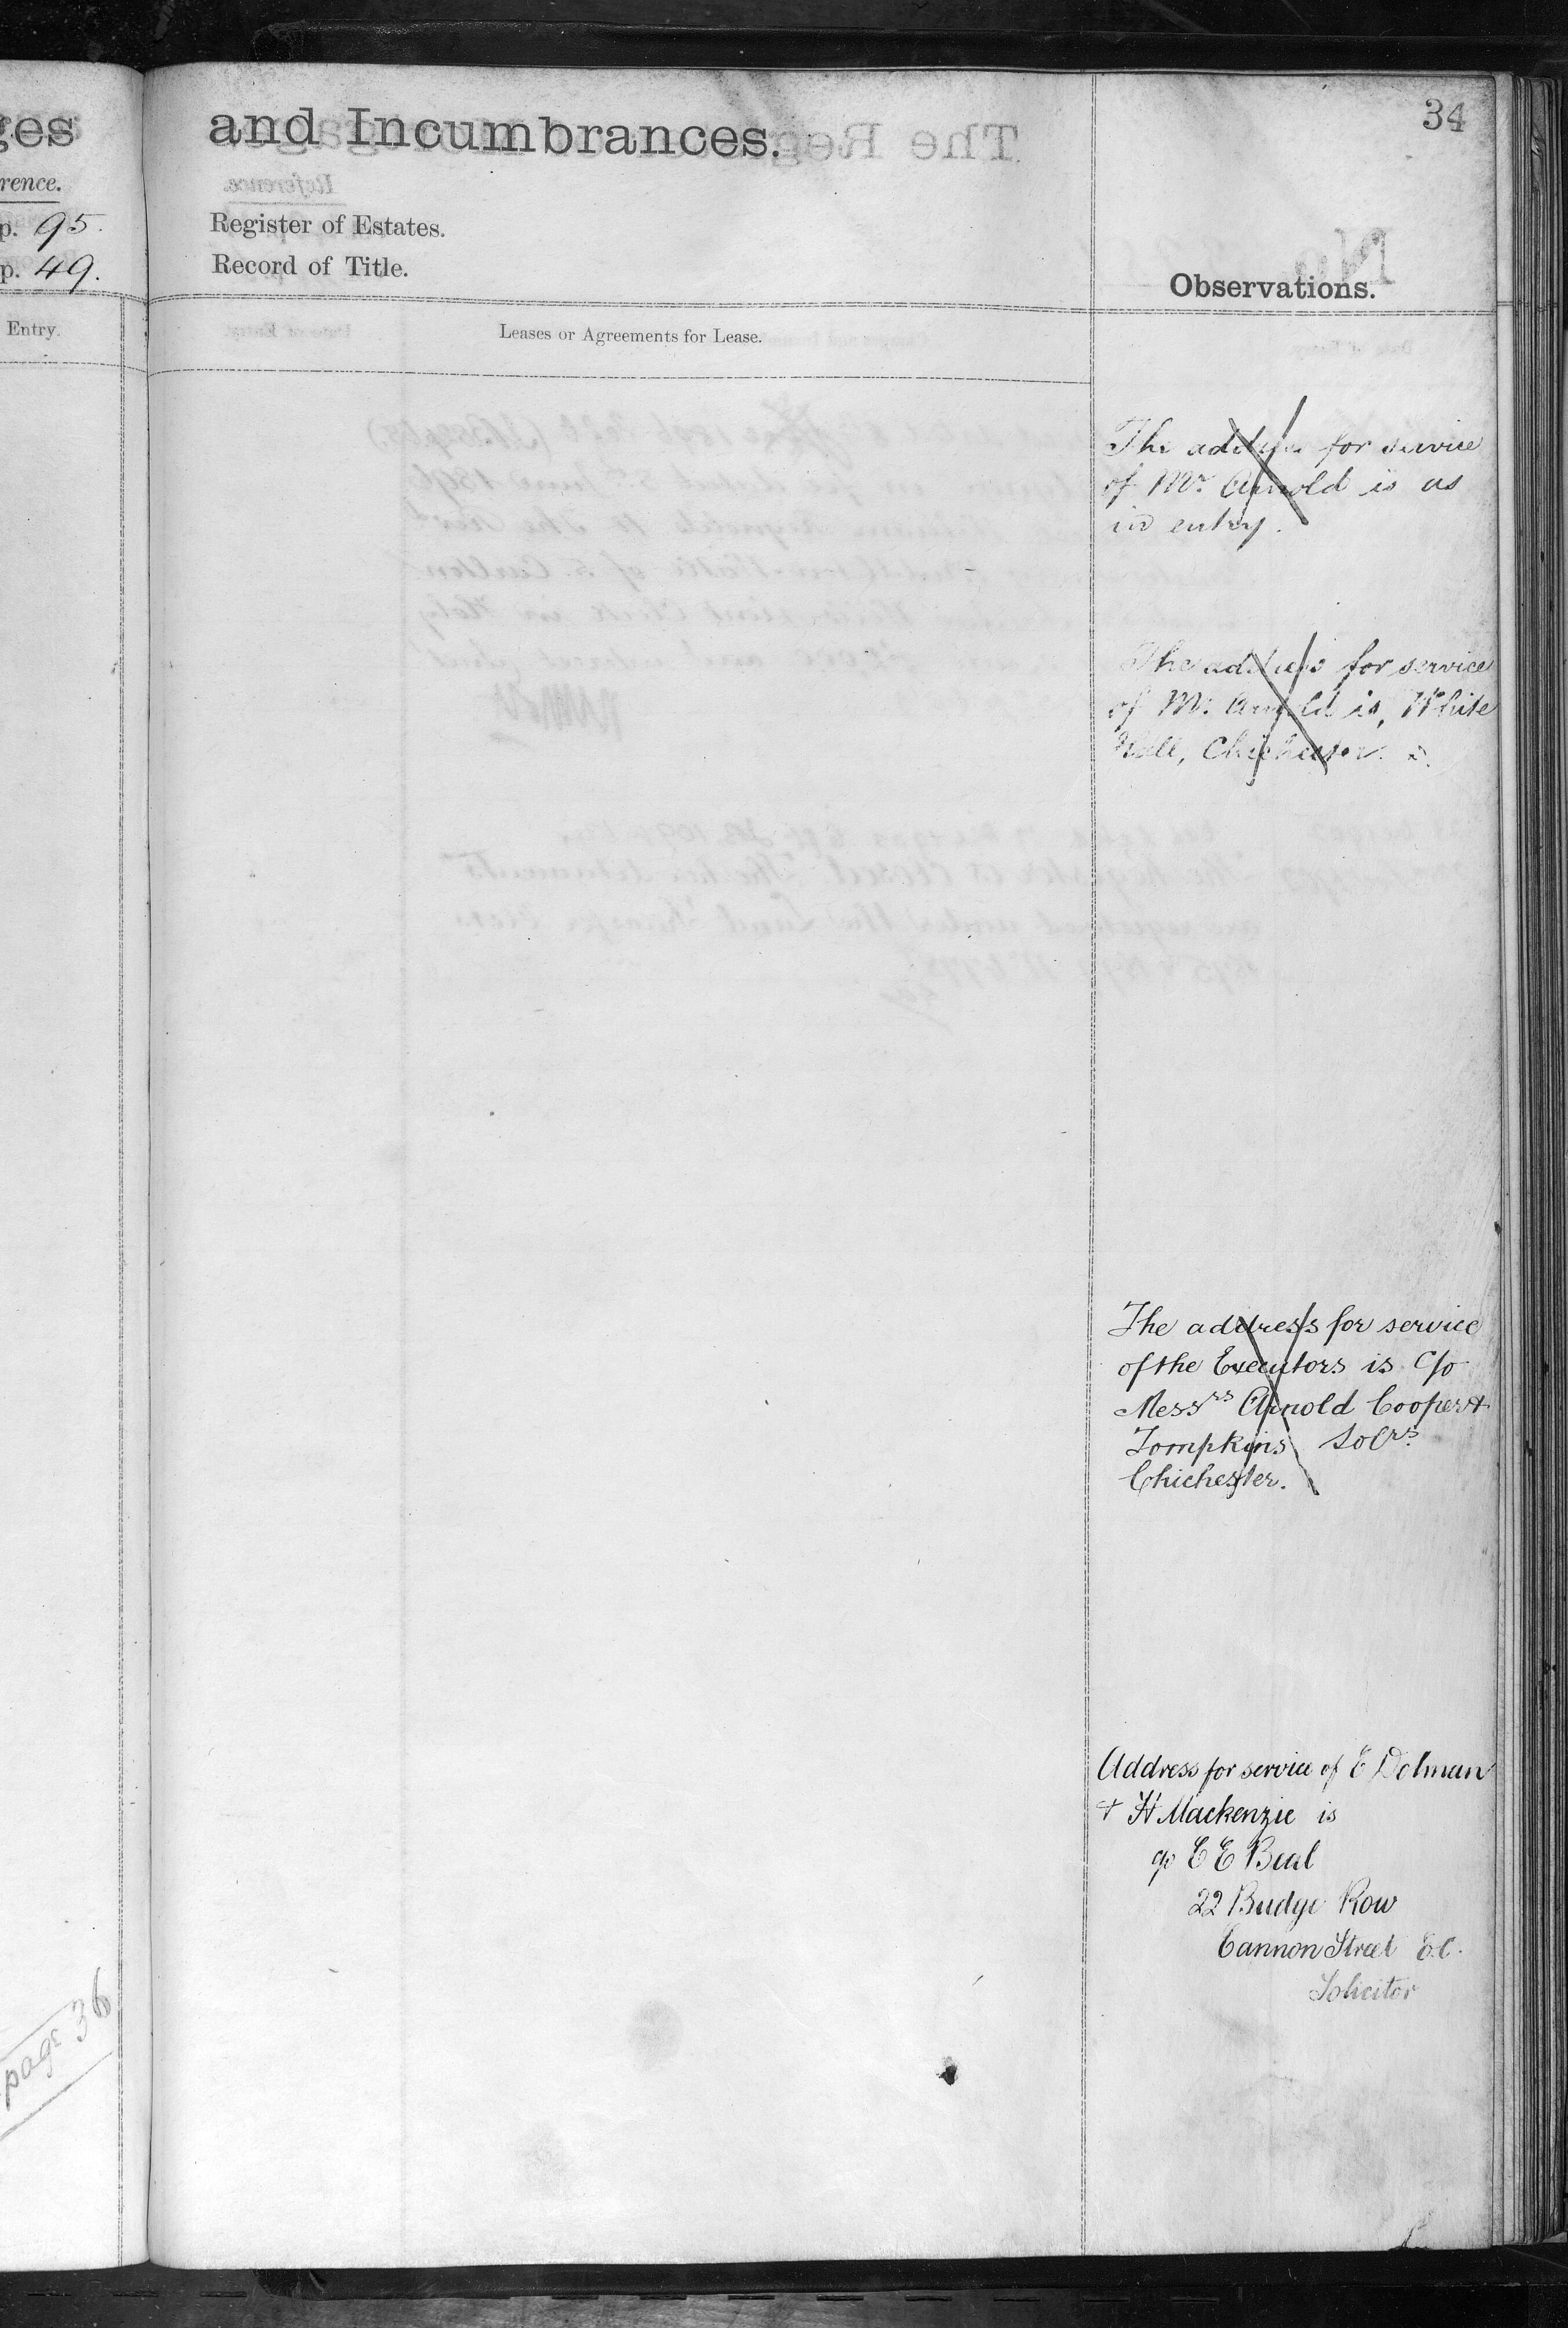 ges
rence.
p. 95.
p. 49.
Entry.
page 36
and Incumbrances.
34
Register of Estates.
Record of Title.
Observations.
Leases or Agreements for Lease.
The address for service
of Mr. Arnold is as
in entry.
The address for service
of Mr. Arnold is, White
Hall, Chichester.
The address for service
of the Executors is C/o
Messrs Arnold Cooper &
Tompkins Solrs.
Chichester.
Address for service of E Dolman
+ H Mackenzie is
c/o C E Beal
22 Budge Row
Cannon Street E.C.
Solicitor